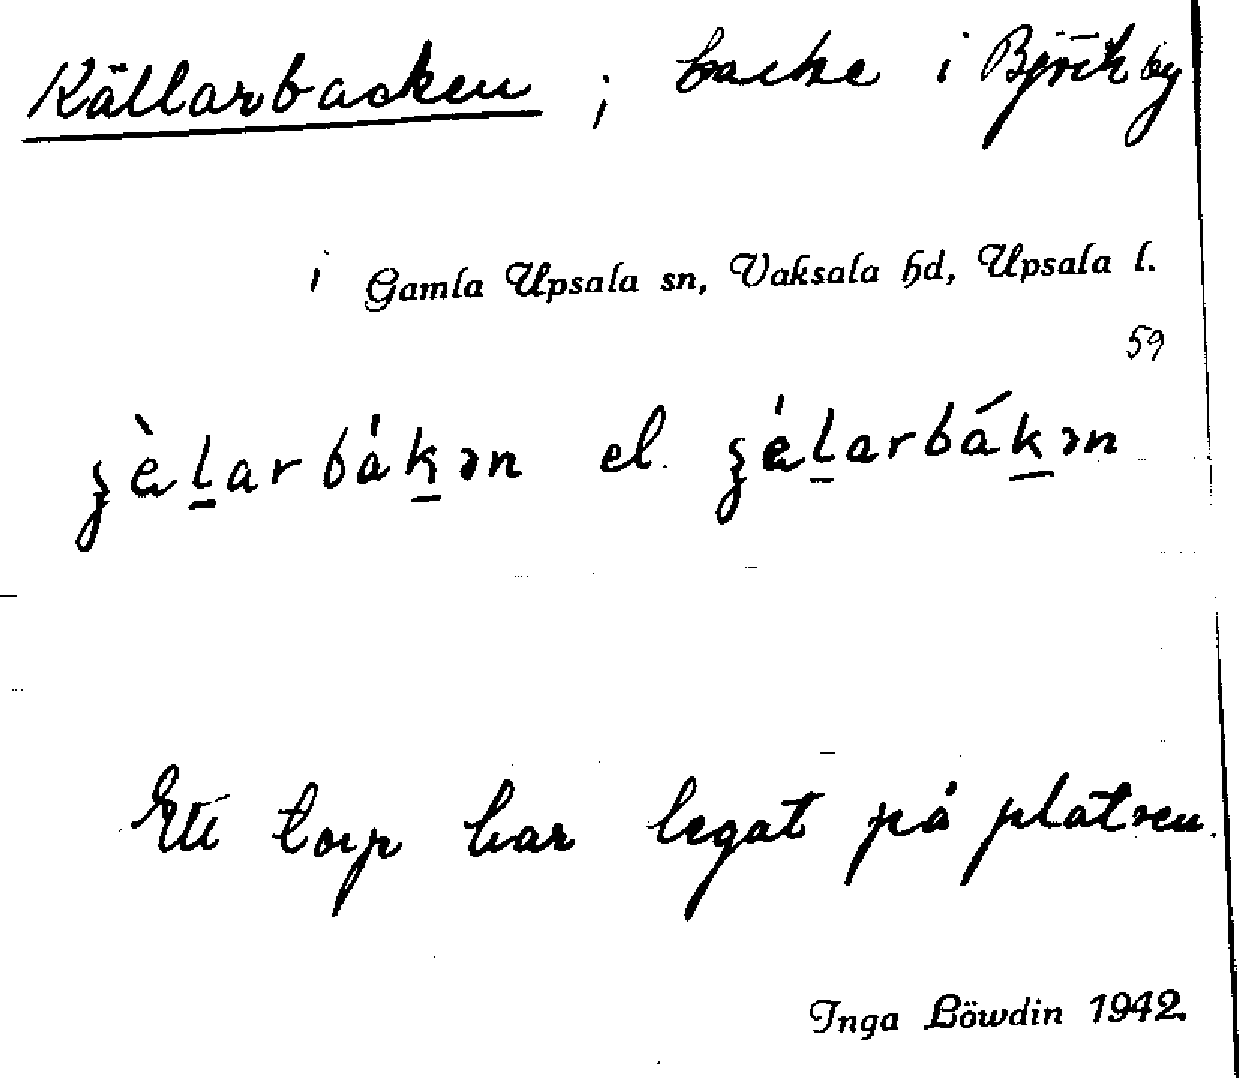 Källarbacken ; backe i Björk by
i Gamla Upsala sn, Vaksala hd, Upsala l.
59
el.
Ett torp har legat på platsen.
Inga Löwdin 1942.